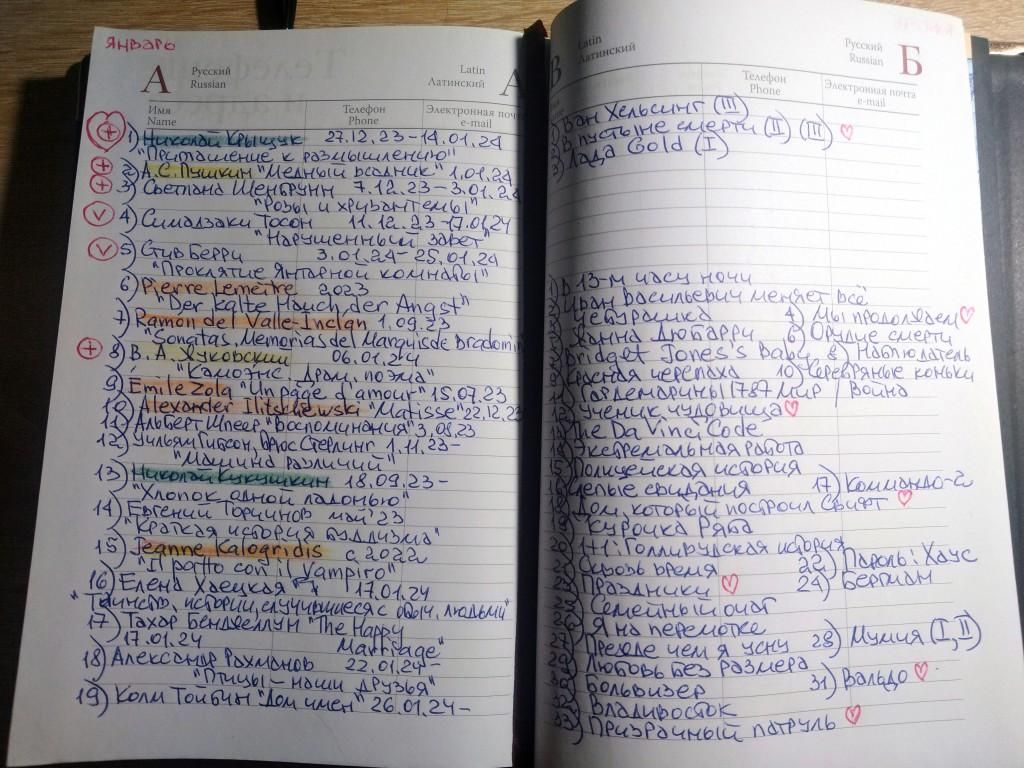 ЯНВАРЬ
А Русский Latin
Russian Латинский
Имя Телефон Электронная почта
Name Phone e-mail
1) Николай Крыщук 27.12.23-14.01.24
"Приглашение к размышлению"
2) А.С. Пушкин "Медный всадник" 1.01.24
3) Светлана Шенбрунн 7.12.23-3.01.24
"Розы и хризантемы"
4) Симадзаки Тосон 11.12.23-17.01.24
"Нарушенный завет"
5) Стив Берри 3.01.24-25.01.24
"Проклятие Янтарной комнаты"
6) Pierre Lemeitre 2023
"Der kalte Hauch der Angst"
7) Ramon del Valle-Inclan 1.09.23
Sonatas. Memorias del Marques de Bradomin
8) В.А. Жуковский 06.01.24
"Камоэнс. Драм. поэма"
9) Emile Zola "Un page d'amour" 15.07.23
10) Alexander Ilitschewski "Matisse" 22.12.23
11) Альберт Шпеер "Воспоминания" 3.08.23
12) Уильям Гибсон, Брюс Стерлинг 1.11.23-
"Машина различий"
13) Николай Кукушкин 18.09.23-
"Хлопок одной ладонью"
14) Евгений Торчинов май'23
"Краткая история буддизма"
15) Jeanne Kalogridis с 2022
"Il patto con il Vampiro"
16) Елена Хаецкая 17.01.24
"Таинств. истории, случившиеся с обыч. людьми"
17) Тахар Бенджеллун "The Happy
17.01.24 Marriage"
18) Александр Рахманов 22.01.24-
"Птицы - наши друзья"
19) Колм Тойбин "Дом имен" 26.01.24-
B Latin Русский Б
Латинский Russian
Телефон Электронная почта
Phone e-mail
1) Ван Хельсинг (III)
2) В пустыне смерти (II) (III) ♡
3) Лада Gold (I)
1) В 13-м часу ночи
2) Иван Васильевич меняет всё
3) Чебурашка 4) Мы продолжаем ♡
5) Жанна Дюбарри 6) Орудие смерти
7) Bridget Jones's Baby 8) Наблюдатель
9) Красная черепаха 10) Серебряные коньки
11) Гардемарины 1787 Мир / Война
12) Ученик чудовища ♡
13) The Da Vinci Code
14) Экстремальная работа
15) Полицейская история
16) Слепые свидания 17) Коммандо-2
18) Дом, который построил Свифт ♡
19) Курочка Ряба
20) Голливудская история
21) Сквозь время 22) Пароль: Хаус
23) Праздники ♡ 24) Бергман
25) Семейный очаг
26) Я на перемотке
27) Прежде чем я усну 28) Мумия (I, II)
29) Любовь без размера
30) Большизер 31) Вальдо ♡
32) Владивосток
33) Призрачный патруль ♡